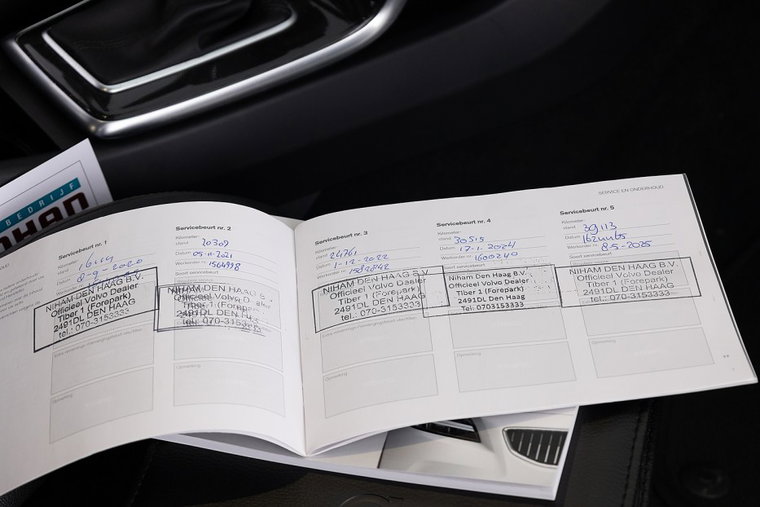 BEDRIJF
SERVICE EN ONDERHOUD
Servicebeurt nr. 1
8-9-2020
NIHAM DEN HAAG B.V.
Officieel Volvo Dealer
Tiber 1 (Forepark)
2491DL DEN HAAG
tel.: 070-3153333
Opmerking
Servicebeurt nr. 2
stand 20309
Datum 05-11-2021
Werkorder nr. 1564998
Soort servicebeurt
NIHAM DEN HAAG B.V.
Officieel Volvo Dealer
Tiber 1 (Forepark)
2491DL DEN HAAG
tel.: 070-3153333
Opmerking
Servicebeurt nr. 3
Kilometer-
stand 24761
Datum 1-12-2022
Werkorder nr. 1582842
Soort servicebeurt
NIHAM DEN HAAG B.V.
Officieel Volvo Dealer
Tiber 1 (Forepark)
2491DL DEN HAAG
tel.: 070-3153333
Opmerking
Servicebeurt nr. 4
Kilometer-
stand 30515
Datum 17-1-2024
Werkorder nr. 1600240
Soort servicebeurt
NIHAM DEN HAAG B.V.
Officieel Volvo Dealer
Tiber 1 (Forepark)
2491DL Den Haag
tel.: 0703153333
Opmerking
Servicebeurt nr. 5
Kilometer-
stand 39113
Datum
Werkorder nr. 8-5-2025
Soort servicebeurt
NIHAM DEN HAAG B.V.
Officieel Volvo Dealer
Tiber 1 (Forepark)
2491DL DEN HAAG
tel.: 070-3153333
Opmerking